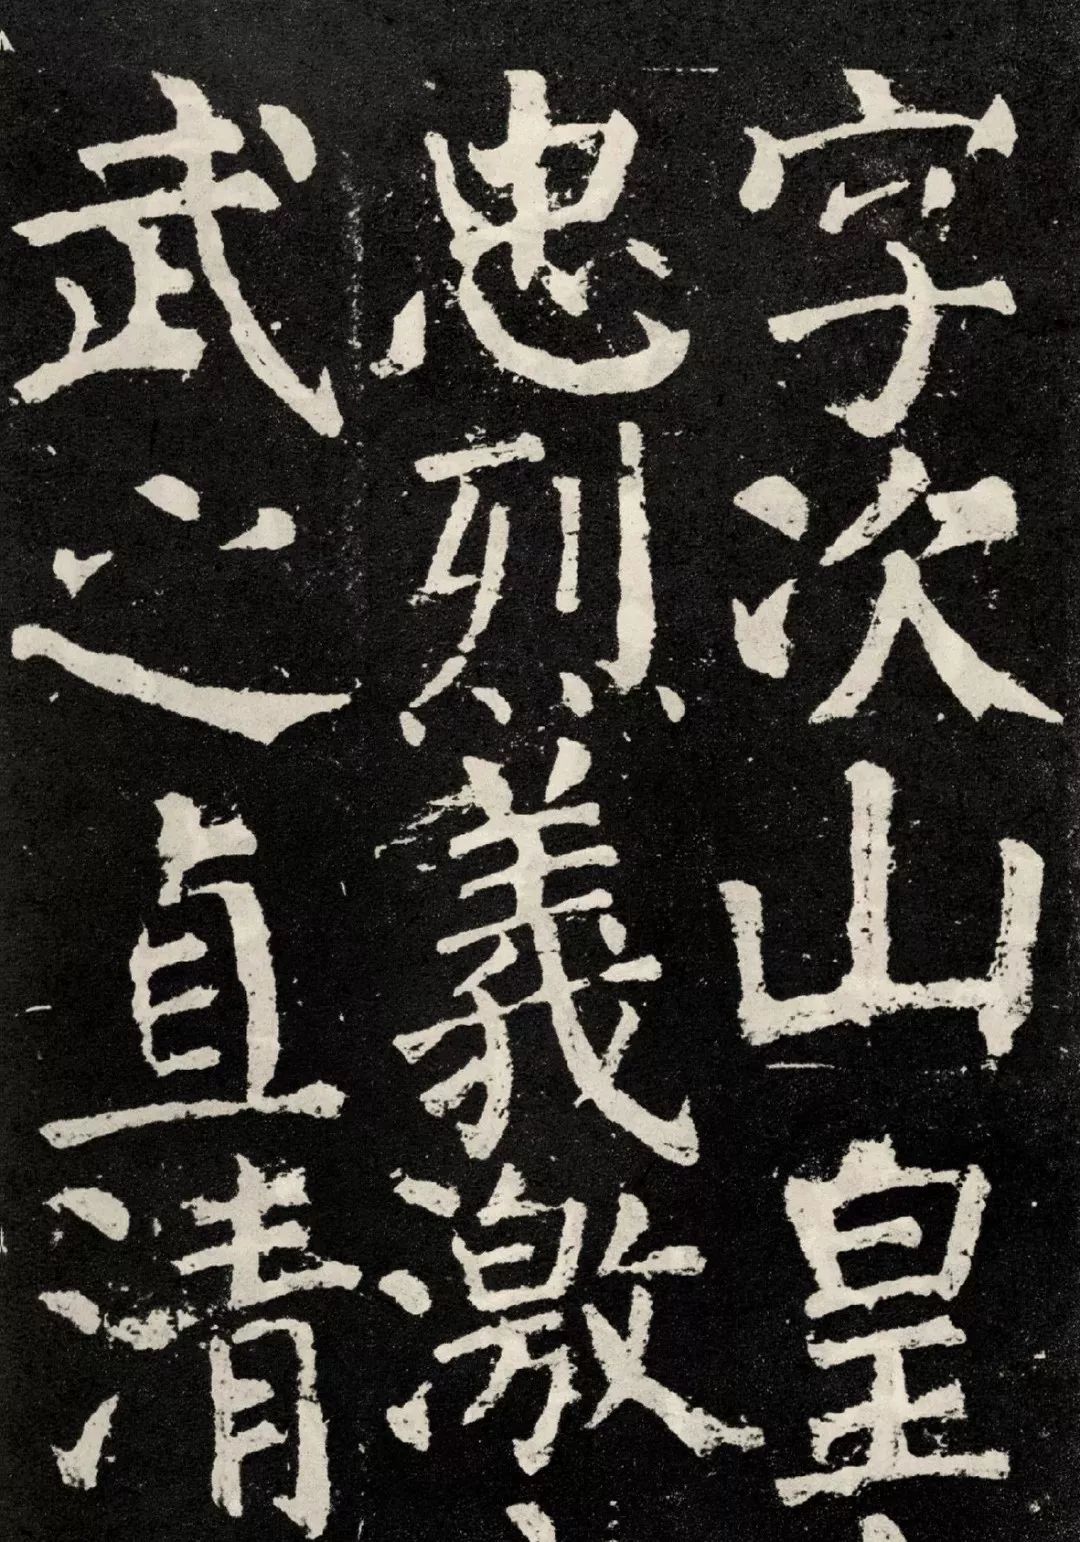 字次山皇
忠烈義激
武之直清